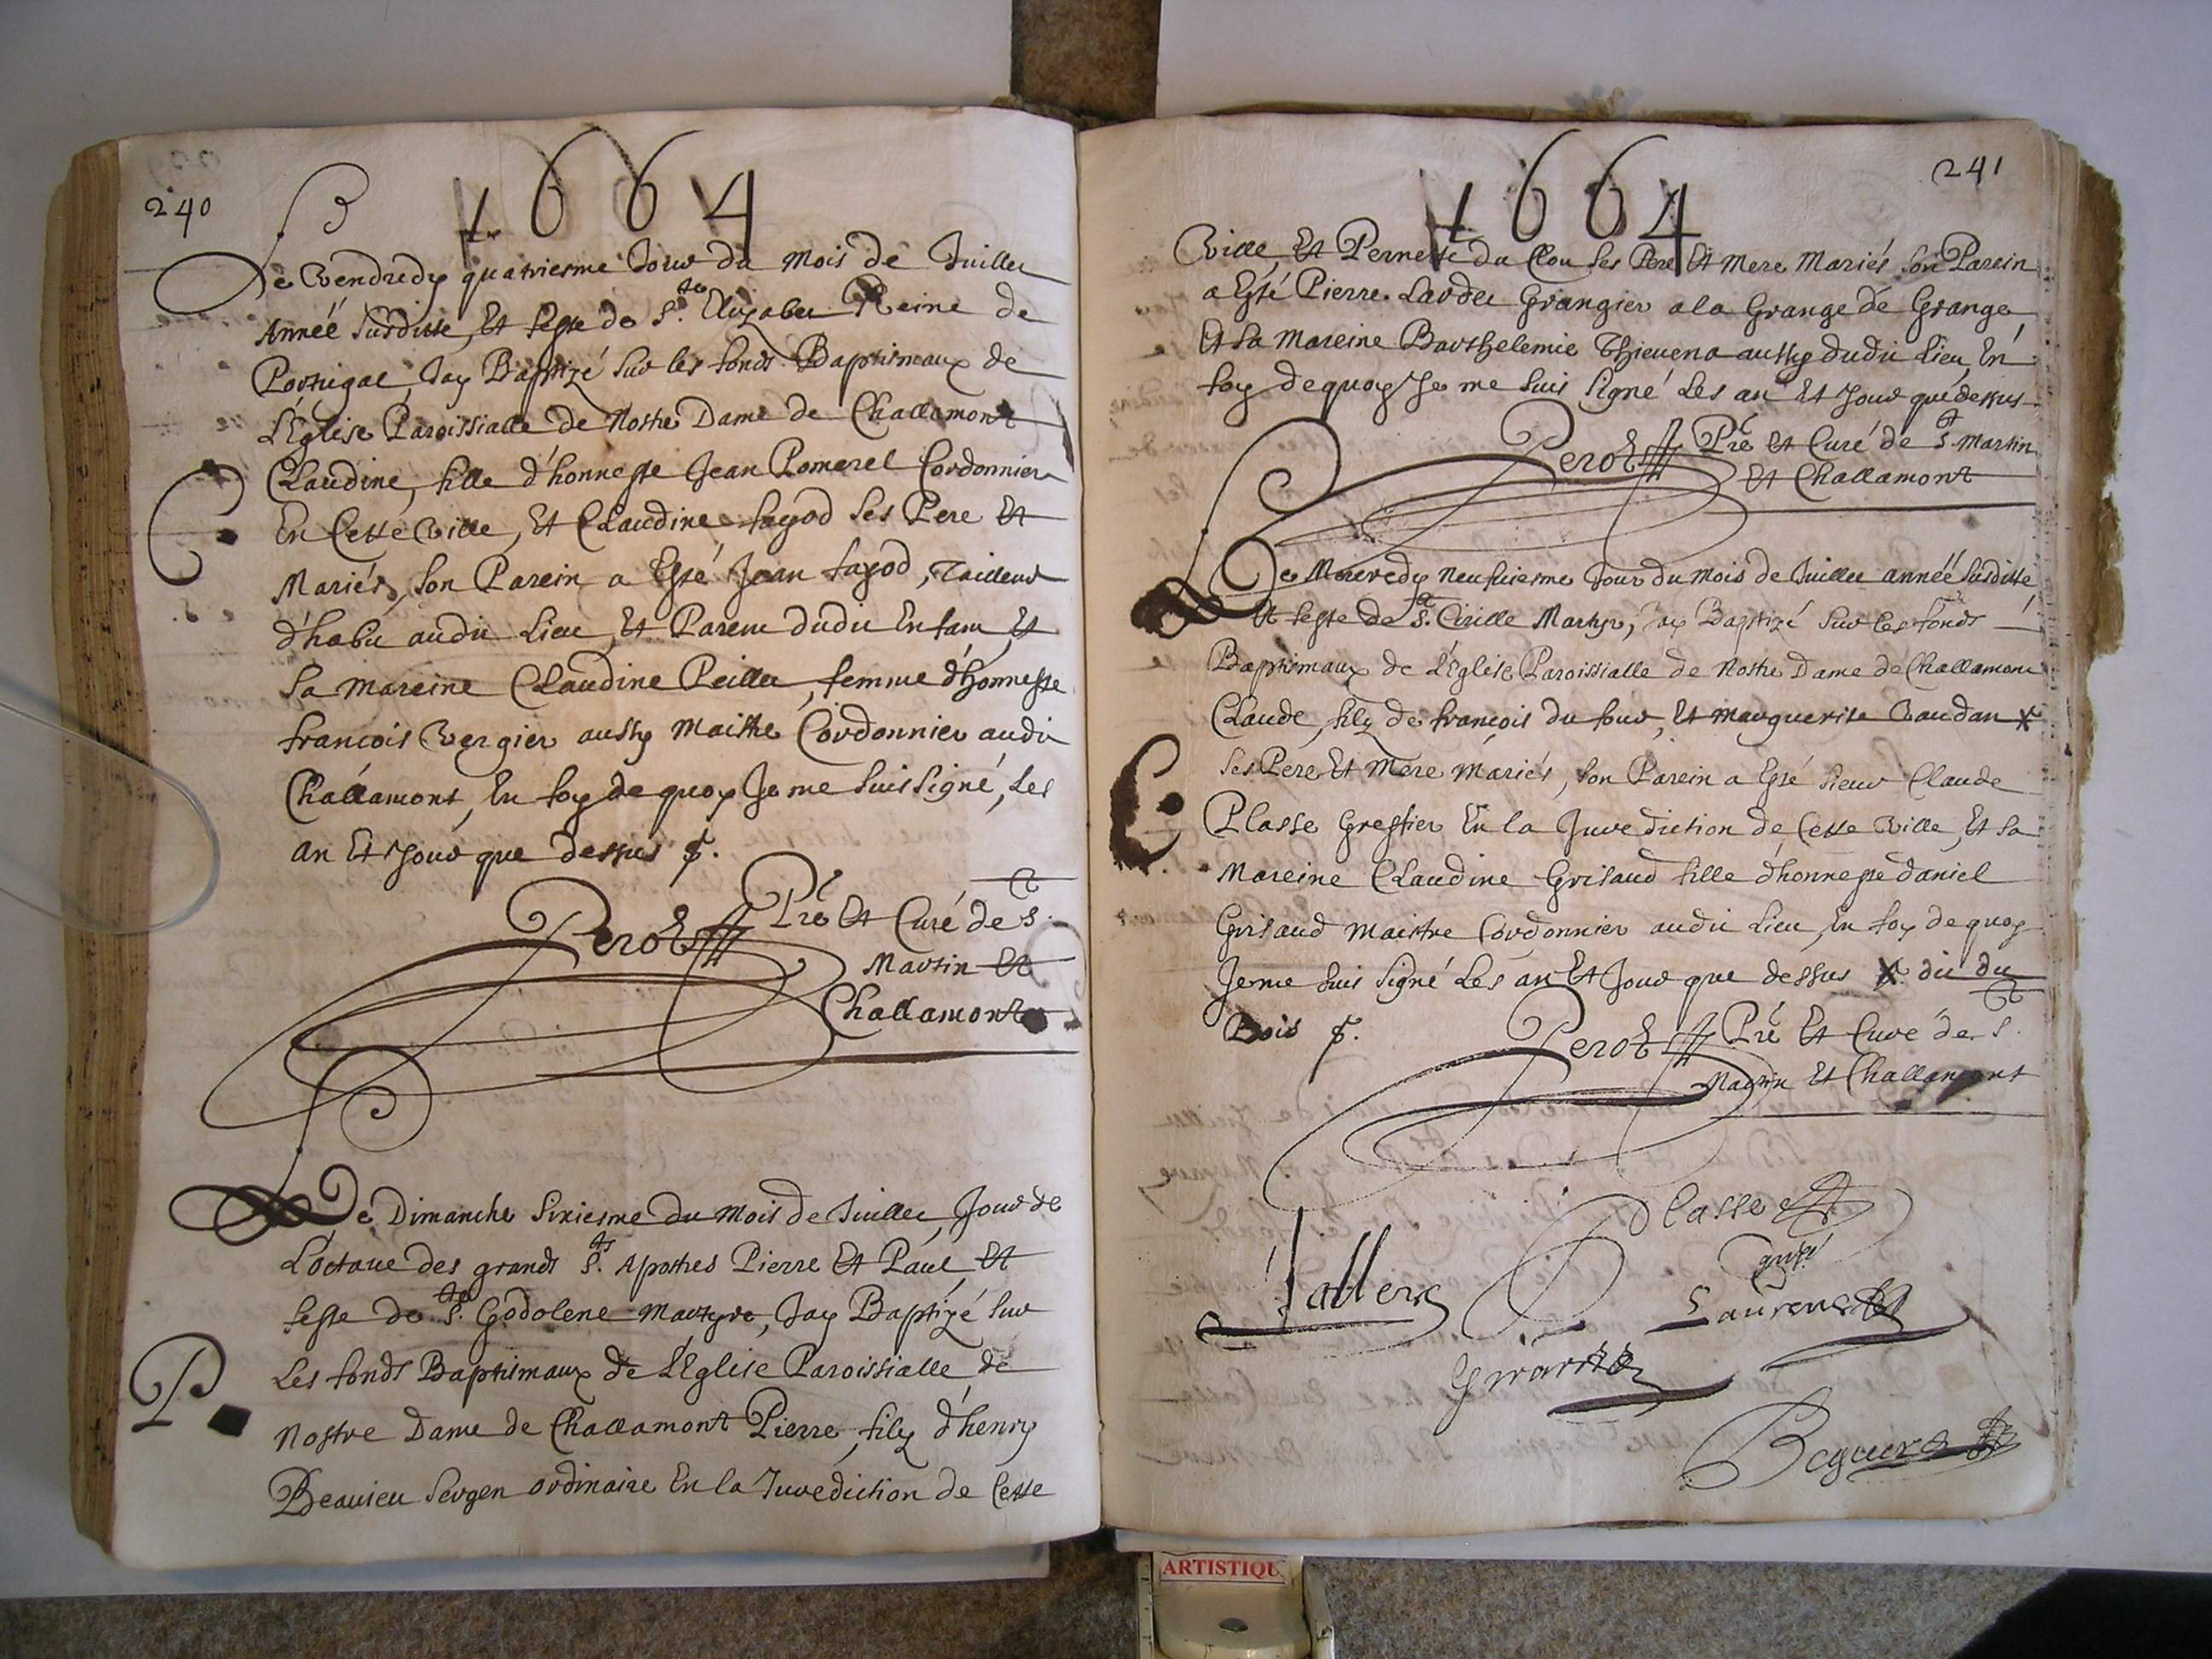 240
1664
Le Vendredy quatriesme Jour du Mois de Juillet
Année susditte, Et feste de S.te Elizabet Reine de
Portugal, Jay Baptizé sur les fonds Baptismaux de
L'Eglise Paroissialle de Nostre Dame de Challamont
Claudine, fille d'honneste Jean Pomerel Cordonnier
En Cette Ville, Et Claudine fayod ses Pere Et
Mariés, son Parein a Esté Jean fayod, Tailleur
d'habit audit Lieu, Et Parent dudit Enfant, Et
sa mareine Claudine Peillet, femme d'honneste
francois Vergier aussy maistre Cordonnier audit
Challamont, En foy de quoy Je me suis signé, Les
an Et Jour que dessus $.
C.
Perot Pre Et Curé de S.t
Martin Et
Challamont
Le Dimanche sixiesme du Mois de Juillet, Jour de
L'octave des grands S.ts Apostres Pierre Et Paul, Et
feste de S.te Godolene martyre, Jay Baptizé sur
Les fonds Baptismaux de L'Eglise Paroissialle de
P.
Nostre Dame de Challamont Pierre, filz d'henry
Beauieu sergent ordinaire En la Jurediction de Cette
241
1664
Ville, Et Pernette du Clou ses Pere Et Mere Mariés son Parein
a Esté Pierre Lardet Grangier a la Grange de Grange
Et sa Mareine Barthelemie Thieuena aussy dudit Lieu, En
foy de quoy Je me suis signé Les an Et Jour que dessus
Perot Pre Et Curé de S.t Martin
Et Challamont
Le Mercredy Neufuiesme Jour du Mois de Juillet année susditte
Et feste de S.t Cirille Martyr, Jay Baptizé sur les fonds
Baptismaux de L'Eglise Paroissialle de Nostre Dame de Challamont
Claude, filz de francois du four, Et marguerite Vaudan X
ses Pere Et Mere Mariés, son Parein a Esté sieur Claude
C.
Plasse Greffier En la Jurediction de Cette Ville, Et sa
Mareine Claudine Grisaud fille d'honneste daniel
Grisaud maistre Cordonnier audit Lieu, En foy de quoy
Je me suis signé Les an Et Jour que dessus X dit du
Bois $.
Perot Pre Et Curé de S.t
Martin Et Challamont
Plasse
Laurens
Girard